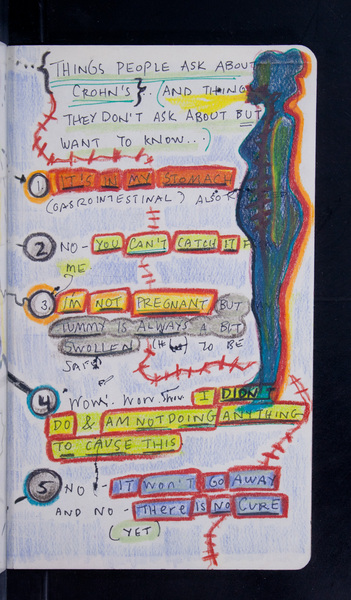 THINGS PEOPLE ASK ABOUT
CROHN'S}.. (AND THING
THEY DON'T ASK ABOUT BUT
WANT TO KNOW..)
1 IT'S IN MY STOMACH
(GASROINTESTINAL) ALSO
2 NO - YOU CAN'T CATCH IT F
ME.
3. IM NOT PREGNANT BUT
TUMMY IS ALWAYS A BIT
SWOLLEN TO BE
4 "WOW. WOW I DIDN'T
DO & AM NOT DOING ANYTHING
TO CAUSE THIS
5 NO - IT WON'T GO AWAY
AND NO - THERE IS NO CURE
(YET)